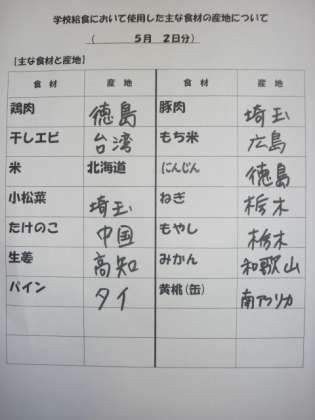 学校給食において使用した主な食材の産地について
( 5月 2日分)
[主な食材と産地]
食材 産地 食材 産地
鶏肉 徳島 豚肉 埼玉
干しエビ 台湾 もち米 広島
米 北海道 にんじん 徳島
小松菜 埼玉 ねぎ 栃木
たけのこ 中国 もやし 栃木
生姜 高知 みかん 和歌山
パイン タイ 黄桃(缶) 南アフリカ